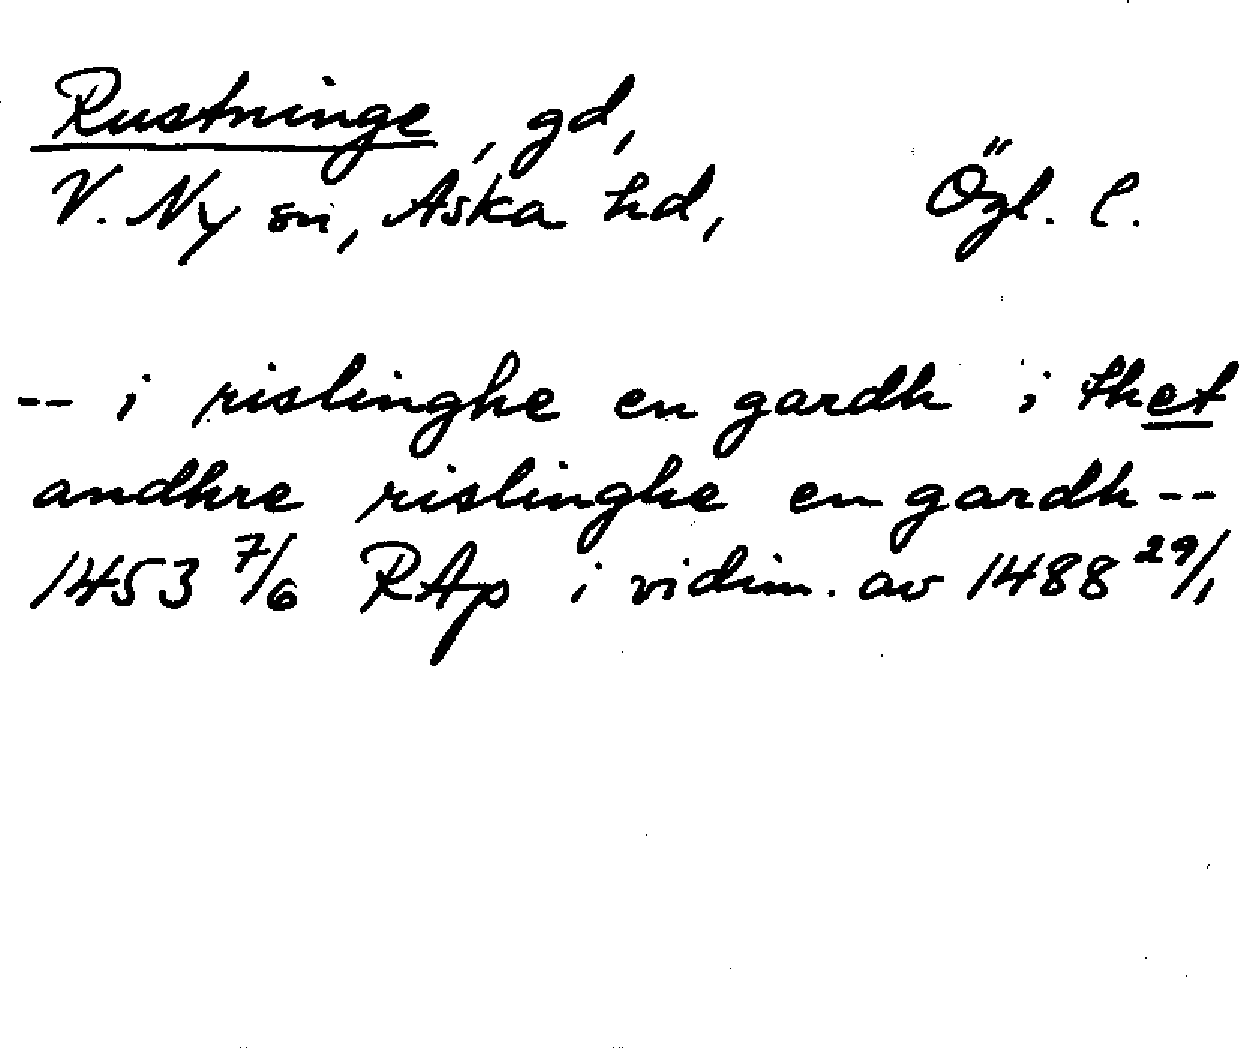 Rustninge, gd,
V. Ny sn, Aska hd, Ögl. l.
-- i rislinghe en gardh i thet
andhre rislinghe en gardh --
1453 7/6 RAp i vidim. av 1488 29/1